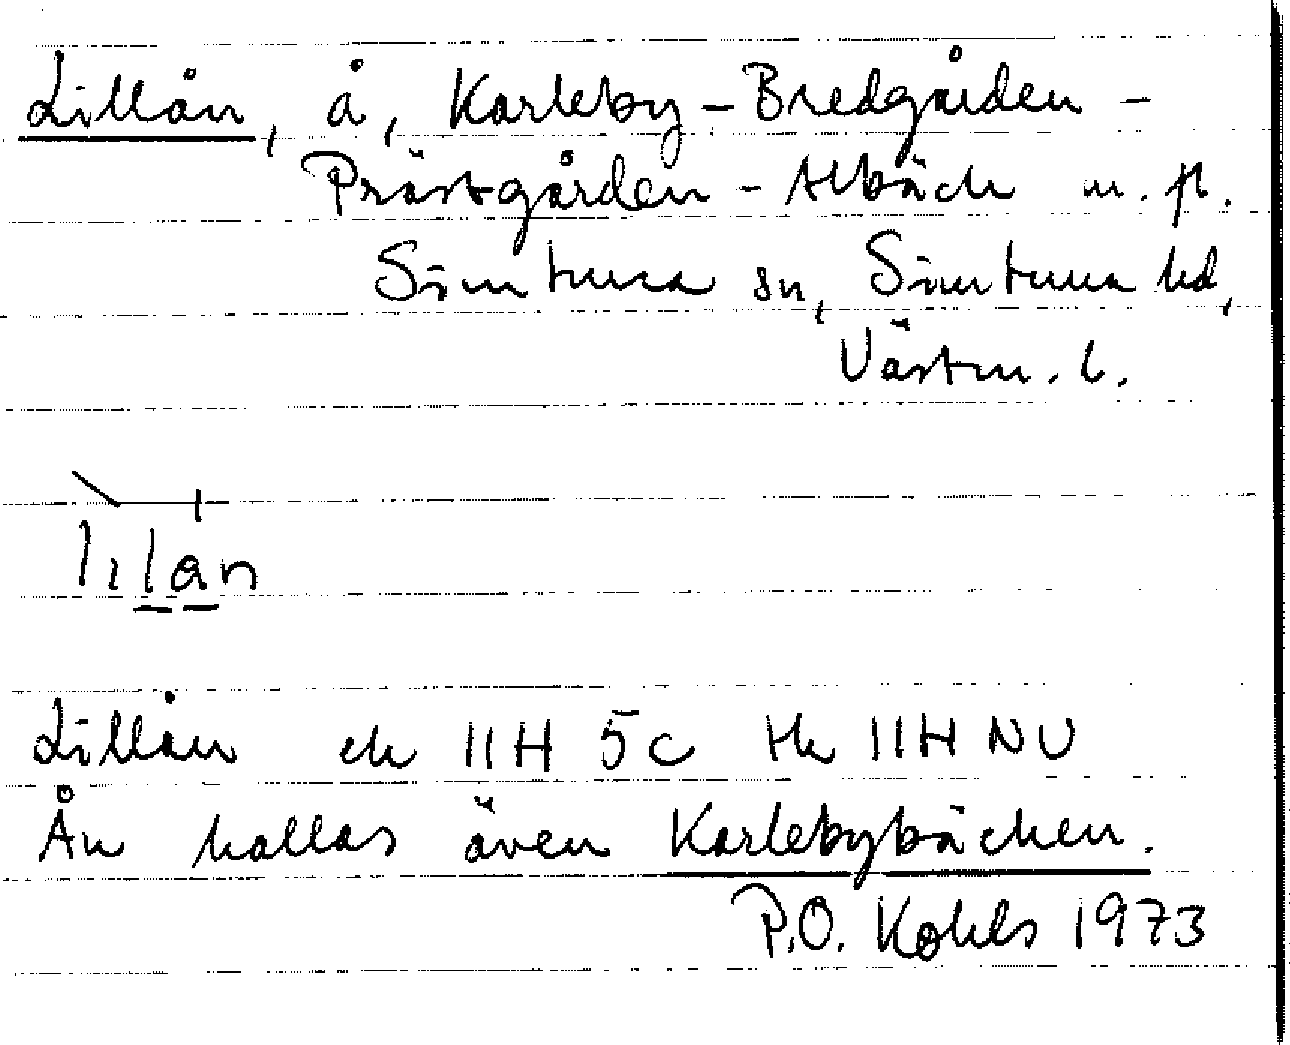 Lillån, å, Karleby - Bredgården -
Prästgården - Albäck m. fl.
Simtuna sn, Simtuna hd,
Västm. l.
lilan
Lillån ek 11H 5c tk 11H NV
Ån kallas även Karlebybäcken.
P.O. Kohls 1973